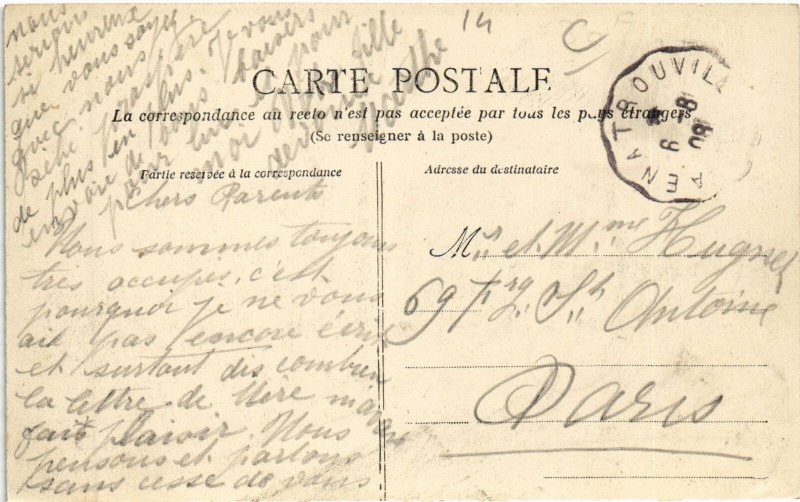 14
CARTE POSTALE
La correspondance au recto n'est pas acceptée par tous les pays étrangers
(Se renseigner à la poste)
Partie reservée à la correspondance
Adresse du destinataire
PENATROUVILL
6 -8
08
Chers Parents
Nous sommes toujours
très occupés, c'est
pourquoi je ne vous
ait pas encore écrit
et surtout dis combien
la lettre de Mère m'a
fait plaisir. Nous
pensons et parlons
sans cesse de vous
nous
serions
si heureux
que vous soyez
avec nous
de plus en plus. Je vous
envoie de bons baisers
pour
moi
Mrs et Mme Hugnet
69 Frg St Antoine
Paris